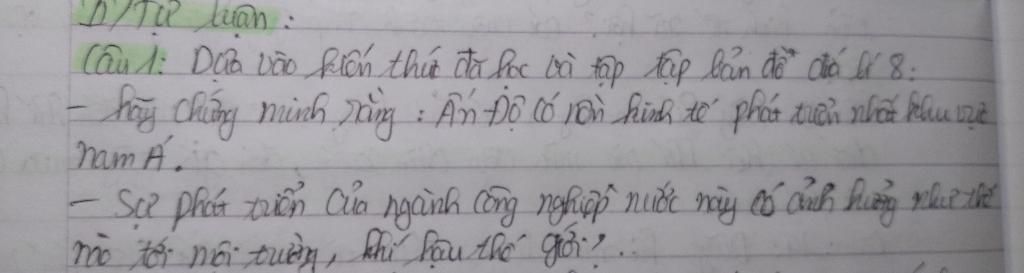 II/ Tự luận:
Câu 1: Dựa vào kiến thức đã học và tập tập bản đồ địa lí 8:
- hãy chứng minh rằng: Ấn Độ có nền kinh tế phát triển nhất khu vực
nam Á.
- Sự phát triển của ngành công nghiệp nước này có ảnh hưởng như thế
nào tới môi trường, khí hậu thế giới?..